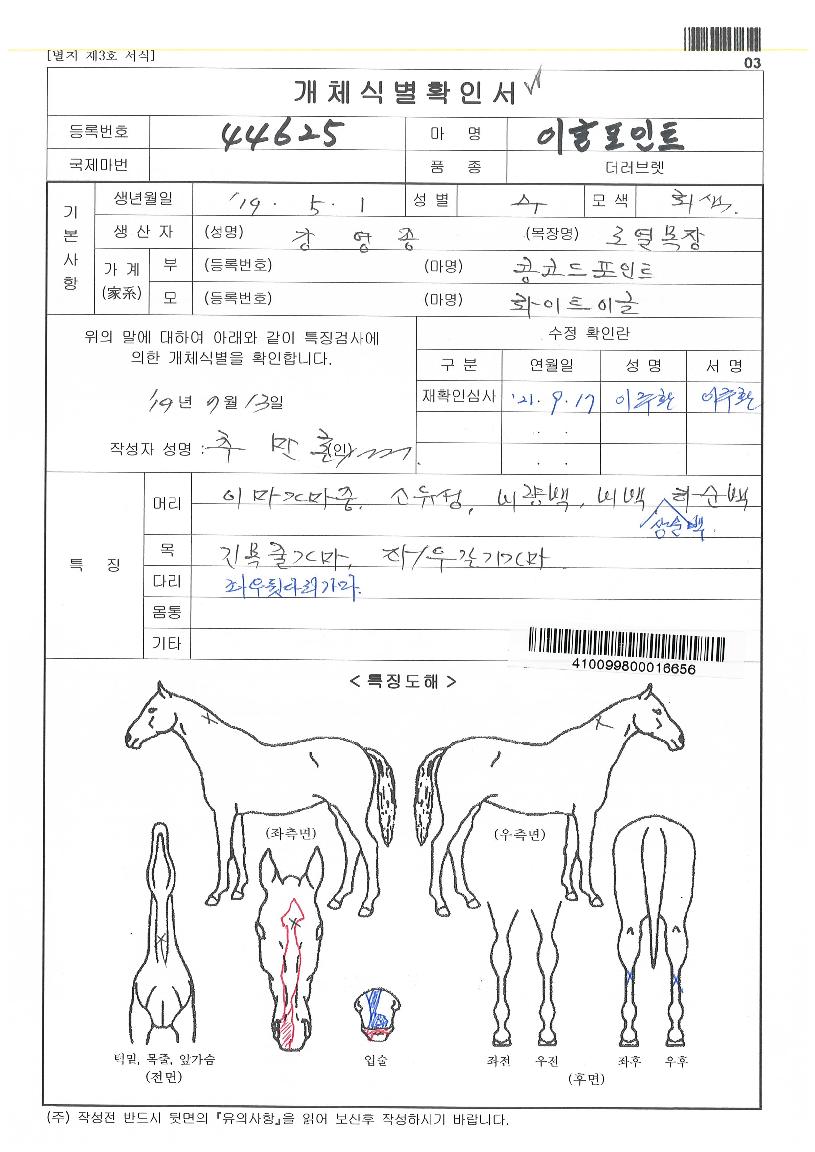 [별지 제3호 서식]
03
개체식별확인서
등록번호 44625 마 명 이글포인트
국제마번 품 종 더러브렛
기본사항
생년월일 '19. 5. 1 성 별 수 모 색 회색.
생 산 자 (성명) 강 영 종 (목장명) 로열목장
가 계 (家系)
부 (등록번호) (마명) 콩코드포인트
모 (등록번호) (마명) 화이트이글
위의 말에 대하여 아래와 같이 특징검사에
의한 개체식별을 확인합니다.
'19년 9월 13일
작성자 성명 : 추 만 (인)
수정 확인란
구 분 연월일 성 명 서 명
재확인심사 '21. 9. 17 이주환 이주환
. .
. .
특 징
머리 이마가마중, 소유성, 비량백, 비백 하순백
상순백.
목 진목줄가마, 좌/우갈기가마
다리 좌우뒷다리가마.
몸통
기타
410099800016656
< 특징도해 >
(좌측면) (우측면)
턱밑, 목줄, 앞가슴 입술 좌전 우진 좌후 우후
(전면) (후면)
(주) 작성전 반드시 뒷면의 『유의사항』을 읽어 보신후 작성하시기 바랍니다.